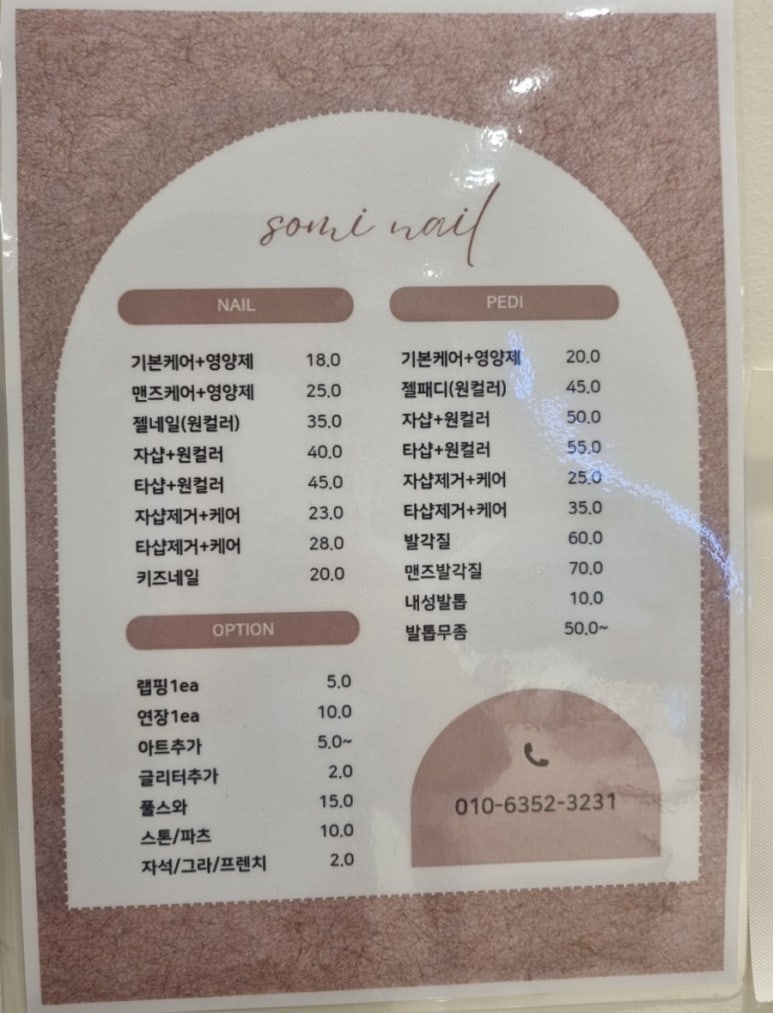 somi nail
NAIL
기본케어+영양제 18.0
맨즈케어+영양제 25.0
젤네일(원컬러) 35.0
자샵+원컬러 40.0
타샵+원컬러 45.0
자샵제거+케어 23.0
타샵제거+케어 28.0
키즈네일 20.0
OPTION
랩핑1ea 5.0
연장1ea 10.0
아트추가 5.0~
글리터추가 2.0
풀스와 15.0
스톤/파츠 10.0
자석/그라/프렌치 2.0
PEDI
기본케어+영양제 20.0
젤패디(원컬러) 45.0
자샵+원컬러 50.0
타샵+원컬러 55.0
자샵제거+케어 25.0
타샵제거+케어 35.0
발각질 60.0
맨즈발각질 70.0
내성발톱 10.0
발톱무좀 50.0~
010-6352-3231